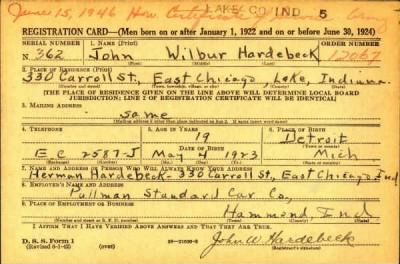 June 15, 1946 Hon Certificate
LAKE CO IND 5
REGISTRATION CARD—(Men born on or after January 1, 1922 and on or before June 30, 1924)
SERIAL NUMBER 1. NAME (Print) ORDER NUMBER
N 362 John Wilbur Hardebeck 12067
(First) (Middle) (Last)
2. PLACE OF RESIDENCE (Print)
330 Carroll St., East Chicago Lake, Indiana.
(Number and street) (Town, township, village, or city) (County) (State)
[THE PLACE OF RESIDENCE GIVEN ON THE LINE ABOVE WILL DETERMINE LOCAL BOARD
JURISDICTION; LINE 2 OF REGISTRATION CERTIFICATE WILL BE IDENTICAL]
3. MAILING ADDRESS
same
(Mailing address if other than place indicated on line 2. If same, insert word same)
4. TELEPHONE 5. AGE IN YEARS 6. PLACE OF BIRTH
19 Detroit
DATE OF BIRTH (Town or county)
E C 2587-J May 4 1923 Mich
(Exchange) (Number) (Mo.) (Day) (Yr.) (State or country)
7. NAME AND ADDRESS OF PERSON WHO WILL ALWAYS KNOW YOUR ADDRESS
Herman Hardebeck - 330 Carroll St, East Chicago Ind
8. EMPLOYER'S NAME AND ADDRESS
Pullman Standard Car Co,
9. PLACE OF EMPLOYMENT OR BUSINESS
Hammond, Ind
(Number and street or R. F. D. number) (Town) (County) (State)
I AFFIRM THAT I HAVE VERIFIED ABOVE ANSWERS AND THAT THEY ARE TRUE.
D. S. S. Form 1
(Revised 6-1-42) John W Hardebeck